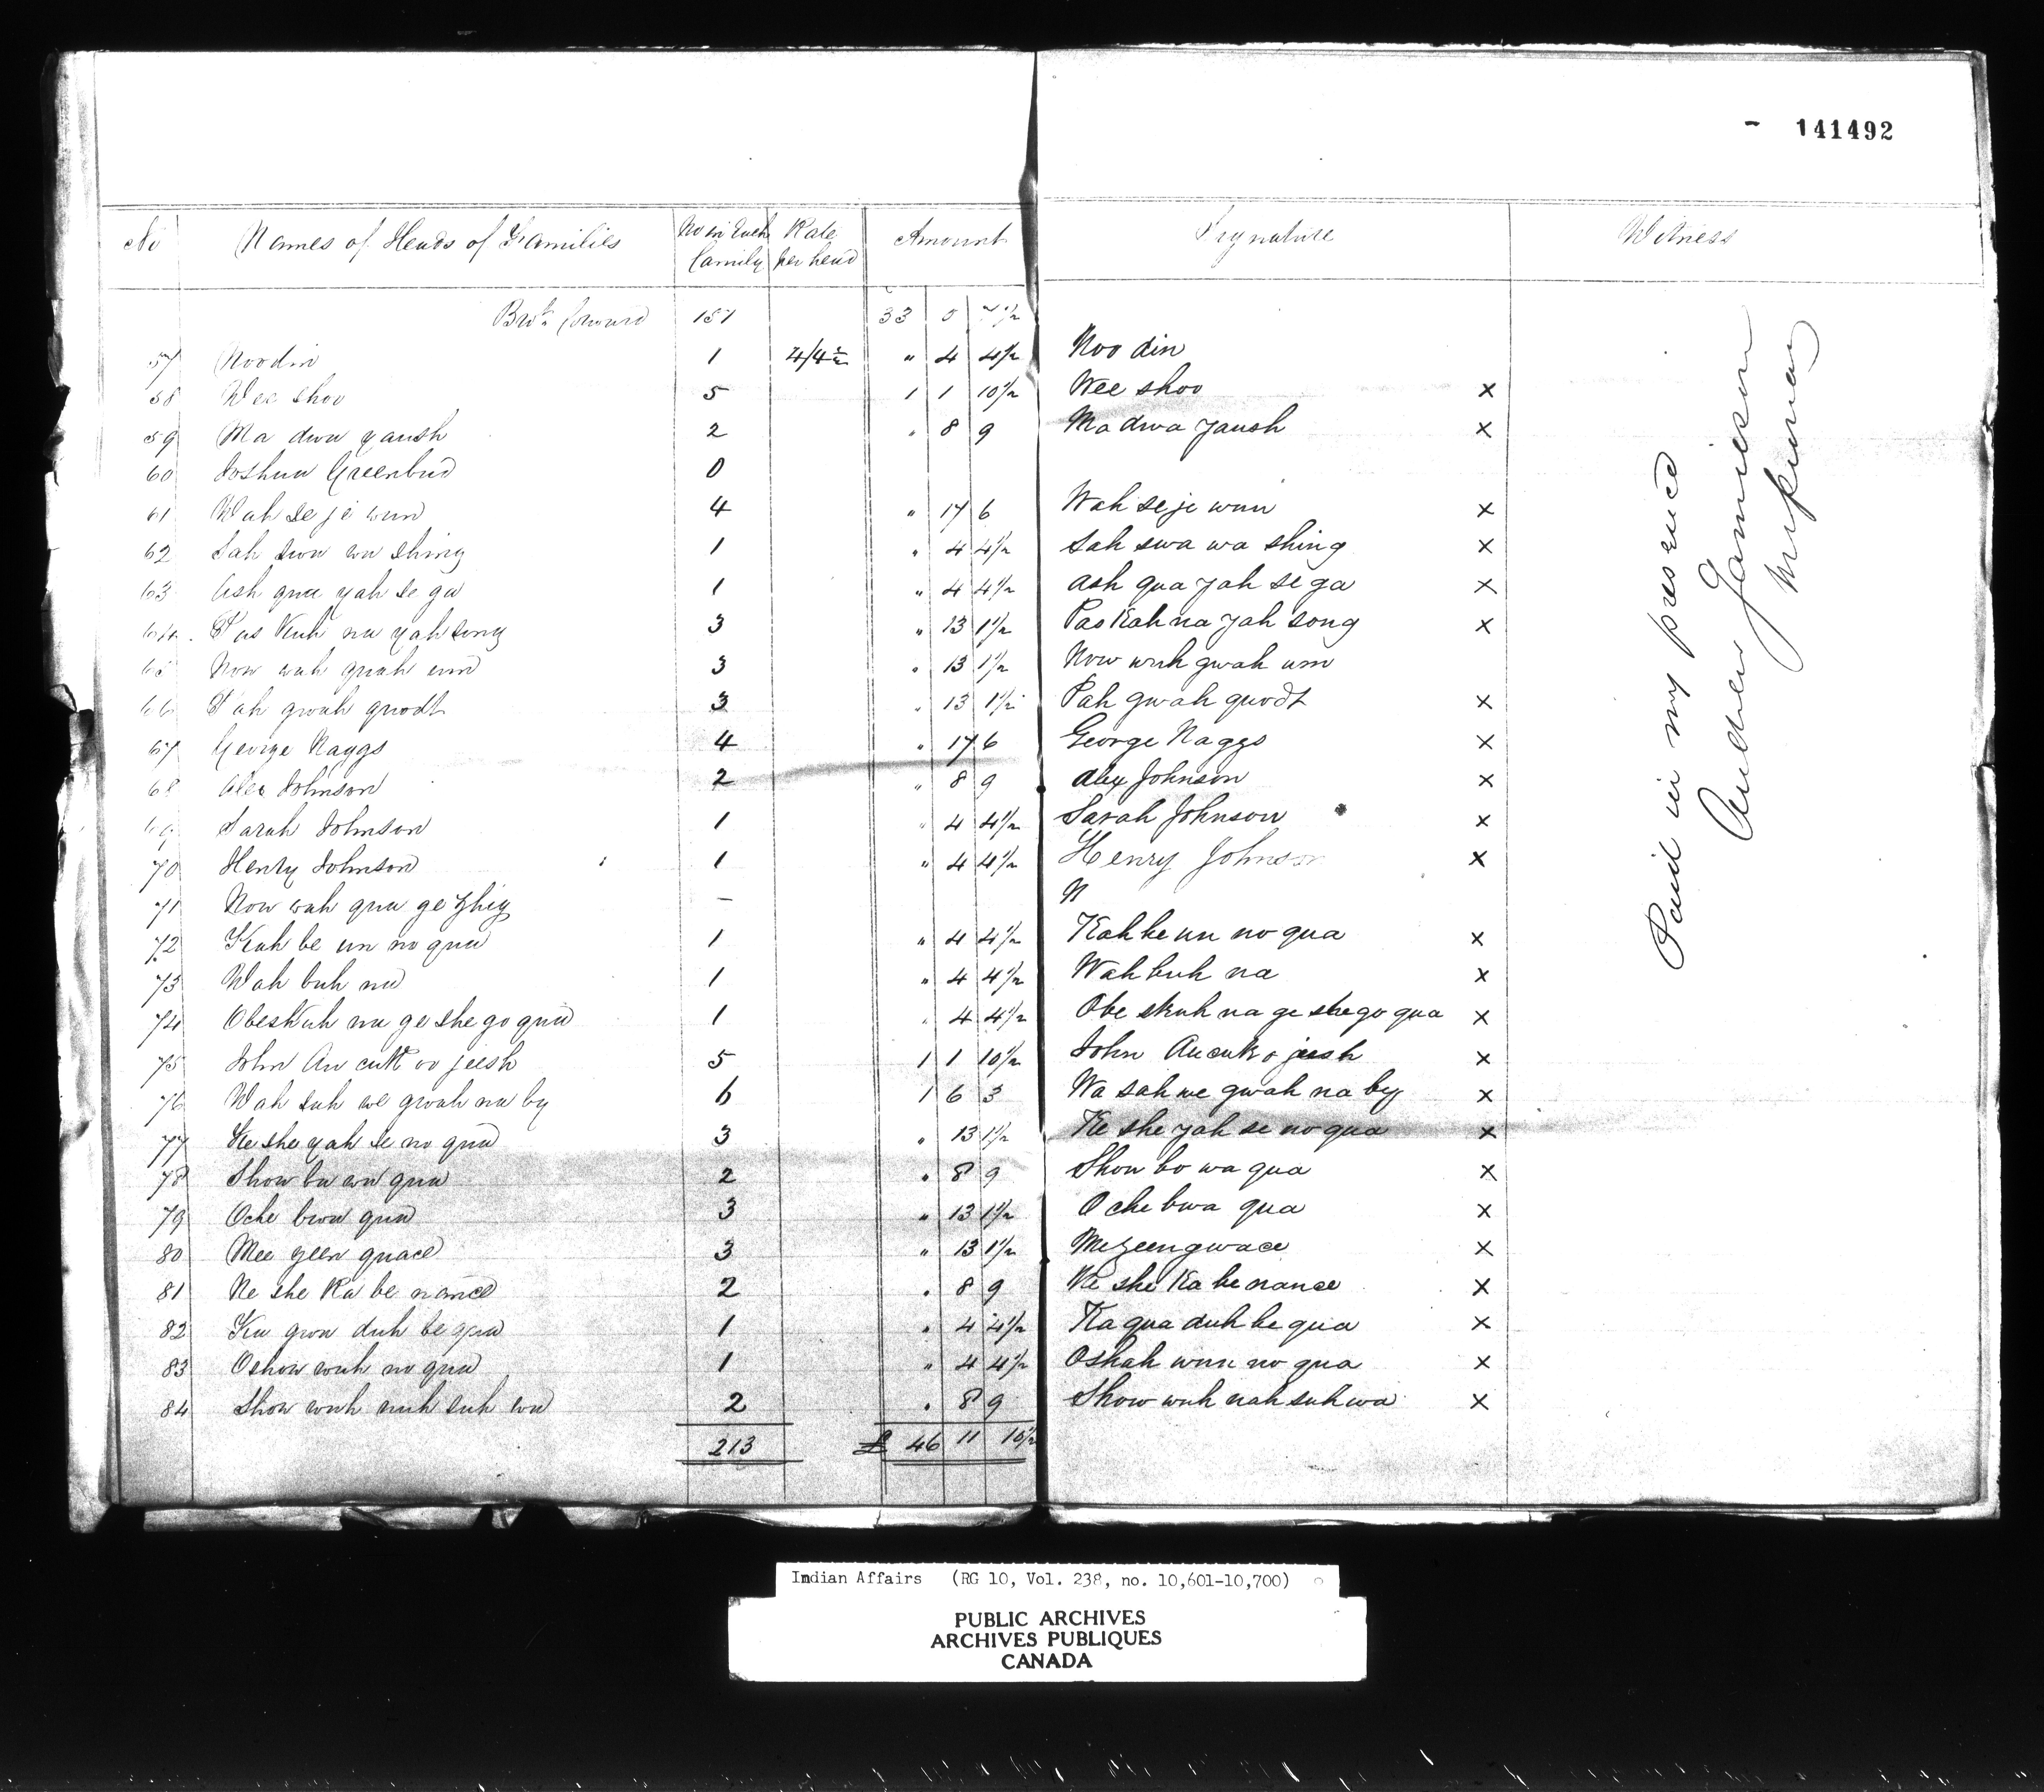 - 141492
No Names of Heads of Families No in Each family Rate per head Amount Signature Witness
Brot forward 151 33 0 7½
57 Noodin 1 4/4½ " 4 4½ Noo din
58 Wee shoo 5 1 1 10½ Wee shoo X
59 Ma dwa yaush 2 " 8 9 Ma dwa yaush X
60 Joshua Greenbird 0
61 Wah se je wun 4 " 17 6 Wah se je wun X
62 Sah swa wa shing 1 " 4 4½ Sah swa wa shing X
63 Ash qua yah se ga 1 " 4 4½ Ash qua yah se ga X
64 Pas kah na yah song 3 " 13 1½ Pas Kah na yah song X
65 Now wah quah um 3 " 13 1½ Now wuh gwah um
66 Pah gwah quodt 3 " 13 1½ Pah gwah quodt X
67 George Naggs 4 " 17 6 George Naggs X
68 Alex Johnson 2 " 8 9 Alex Johnson X
69 Sarah Johnson 1 " 4 4½ Sarah Johnson X
70 Henry Johnson 1 " 4 4½ Henry Johnson X
71 Now wah qua ge zhig – N
72 Kah be un no qua 1 " 4 4½ Kah be un no qua X
73 Wah buh na 1 " 4 4½ Wah buh na X
74 Obeskuh na ge she go qua 1 " 4 4½ Obe skuh na ge she go qua X
75 John An cutt oo jeesh 5 1 1 10½ John jeesh X
76 Wah suh we gwah na by 6 1 6 3 Wa sah we gwah na by X
77 Ke she yah se no qua 3 " 13 1½ Ke she yah se no qua X
78 Show ba wa qua 2 " 8 9 Show bo wa qua X
79 Oche bwa qua 3 " 13 1½ O che bwa qua X
80 Mee zeen quace 3 " 13 1½ Me zeen gwace X
81 Ne she Ka be nance 2 " 8 9 Ne she Ka be nance X
82 Ka gwa duh be qua 1 " 4 4½ Ka qua duh be qua X
83 Oshow wuh no qua 1 " 4 4½ Oshah wun no qua X
84 Show wuh nuh suh wa 2 " 8 9 Show wuh nah suh wa X
213 £ 46 11 10½
Paid in my presence
Andrew Jamieson
Missionary
Indian Affairs (RG 10, Vol. 238, no. 10,601-10,700)
PUBLIC ARCHIVES
ARCHIVES PUBLIQUES
CANADA